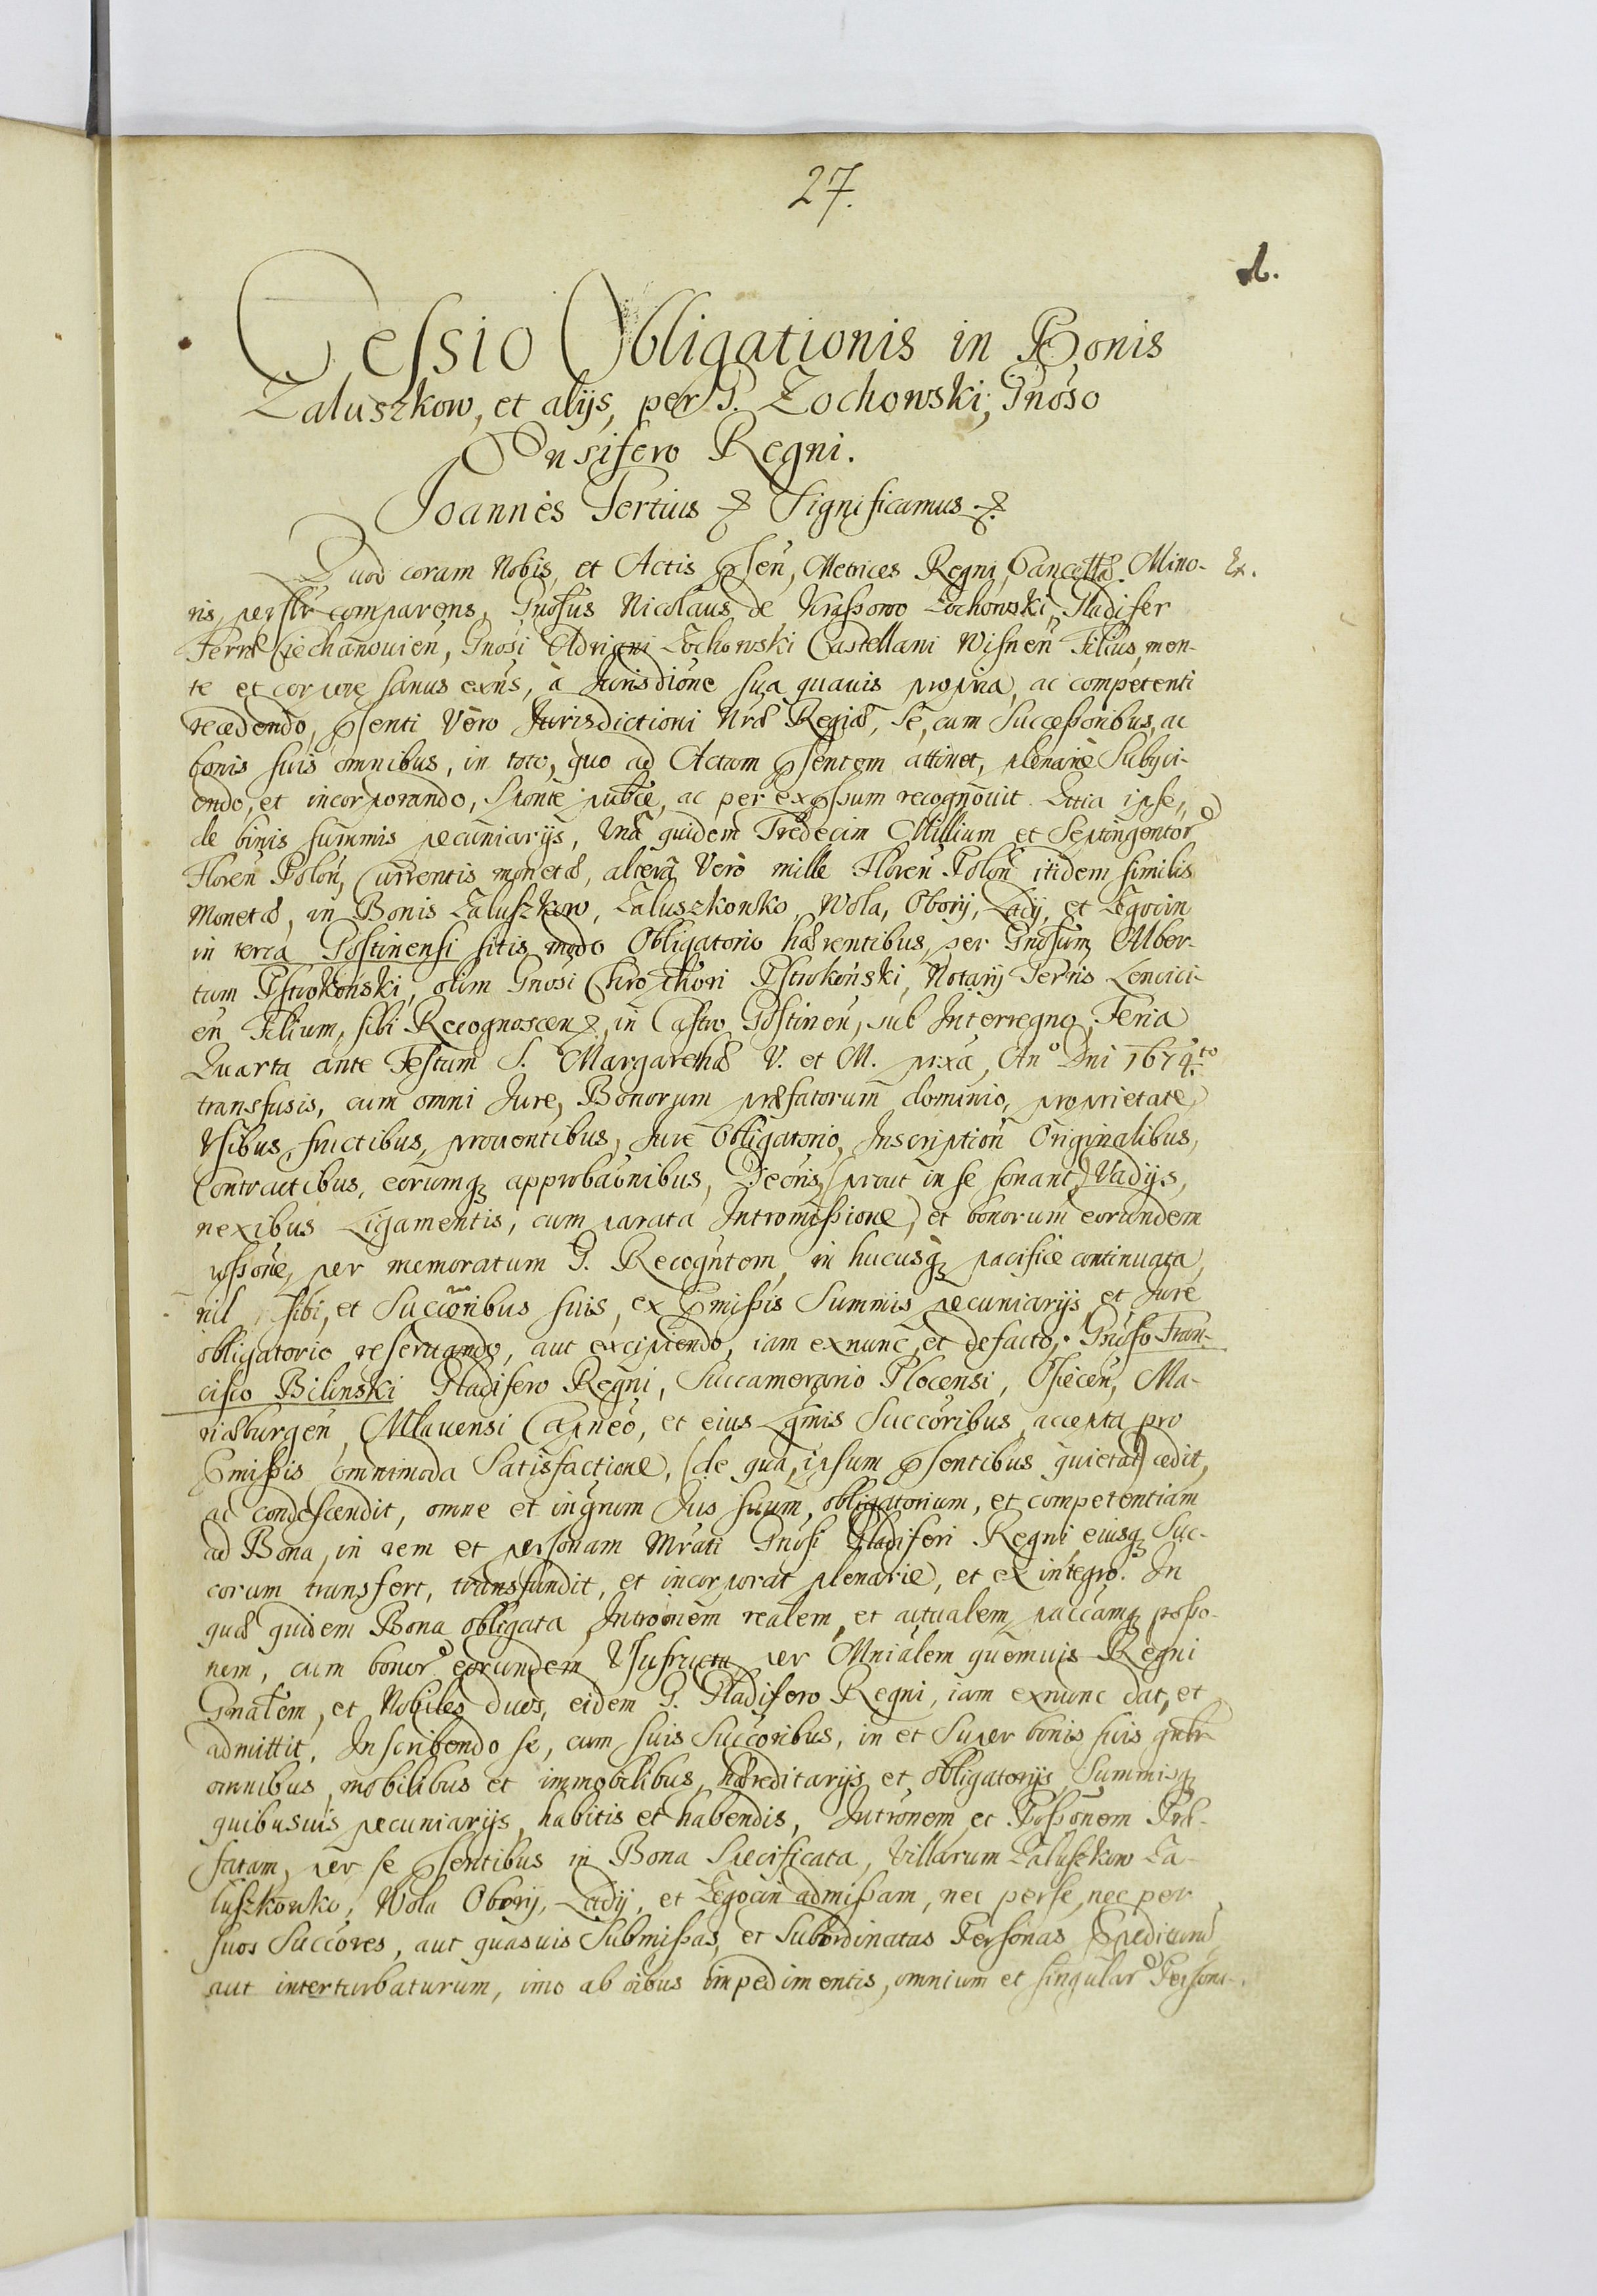 27.
Cessio Obligationis in Bonis
Zaluszkow, et alijs, per G. Zochowski, Gnoso
Ensifero Regni.
Joannes Tertius Significamus
Quod coram Nobis, et Actis pñten, Metrices Regni Cancellæ Mino-
ris, persltr comparens, Gnosus Nicolaus de Krassowo Zochowski, Gladifer
Terræ Ciechanouien, Gnosi Adriani Zochowski Castellani Wisnen Filius, men-
te et corpore sanus exns, à Jurisdione sua quauis propria, ac competenti
recedendo, psenti Vero Jurisdictioni Nræ Regiæ, se, cum Successoribus, ac
bonis suis omnibus, in toto, quo ad Actum psentem attinet, plenarie Subyci-
endo, et incorporando, Sponte publce, ac per expssum recognouit. Quia ipse,
de binis summis pecuniarijs, Vna quidem Tredecim Millium et Septingentor
Floren Polon, Currentis monetæ, altera Vero mille Floren Polon itidem similis
Monetæ, in Bonis Zaluszkow, Zaluszkowko, Wola, Oborij, Lady, et Zegocin
in terra Gostinensi sitis modo Obligatorio hærentibus, per Gnosum Alber-
tum Pstrokonski, olim Gnosi Pstrokonski, Notarij Terris Lencici-
en Filium, sibi Recognoscen, in Castro Gostinen, sub Interregno, Feria
Quarta ante Festum S. Margarethæ V. et M. pxa, Anº Dni 1674to
transfusis, cum omni Jure, Bonorum præfatorum dominio, proprietate
Vsibus, fructibus, prouentibus, Jure Obligatorio, Inscription Originalibus,
Contractibus, eorumq approbaõnibus, Decris, (prout in se sonant) Vadijs,
nexibus Ligamentis, cum parata Intromissione, et bonorum eorundem
possone, per memoratum G. Recogntem, in hucusq pacifice continuata,
nil sibi, et Succoribus suis, ex Pmissis Summis pecuniarijs et Jure
obligatorio reseruando, aut excipiendo, iam exnunc, et defacto, Gnoso Fran-
cisco Bilinski Gladifero Regni, Succamerario Plocensi, Osiecen, Ma-
riæburgen, Mlauensi Capneo, et eius Lgmis Succoribus, accepta pro
Pmissis omnimoda Satisfactione, (de qua, ipsum psentibus quietat) cedit,
ac condescendit, omne et ingrum Jus suum, obligatorium, et competentiam
ad Bona, in rem et personam Mrati Gnosi Gladiferi Regni, eiusq Suc-
corum transfert, transfundit, et incorporat plenarie, et ex integro. In
quæ quidem Bona obligata, Intromem realem, et actualem, paccamq posso-
nem, cum bonor eorundem Vsufructu, per Mnialem quemuis Regni
Gnalem, et Nobiles duos, eidem G. Gladifero Regni, iam exnunc dat, et
admittit. Inscribendo se, cum suis Succoribus, in et Super bonis suis gnlr
omnibus, mobilibus et immobilibus, hæreditarijs et obligatorijs, Summisq
quibusuis pecuniarijs, habitis et habendis, Intronem et Possonem Præ-
fatam, per se psentibus in Bona Specificata, Villarum Zaluszkow Za-
luszkowko, Wola Oborij, Lady, et Zegocin admissam, nec perse, nec per
suos Succores, aut quasuis Submissas, et Subordinatas Personas
aut interturbaturum, imo ab oibus impedimentis, omnium et singular Persona-